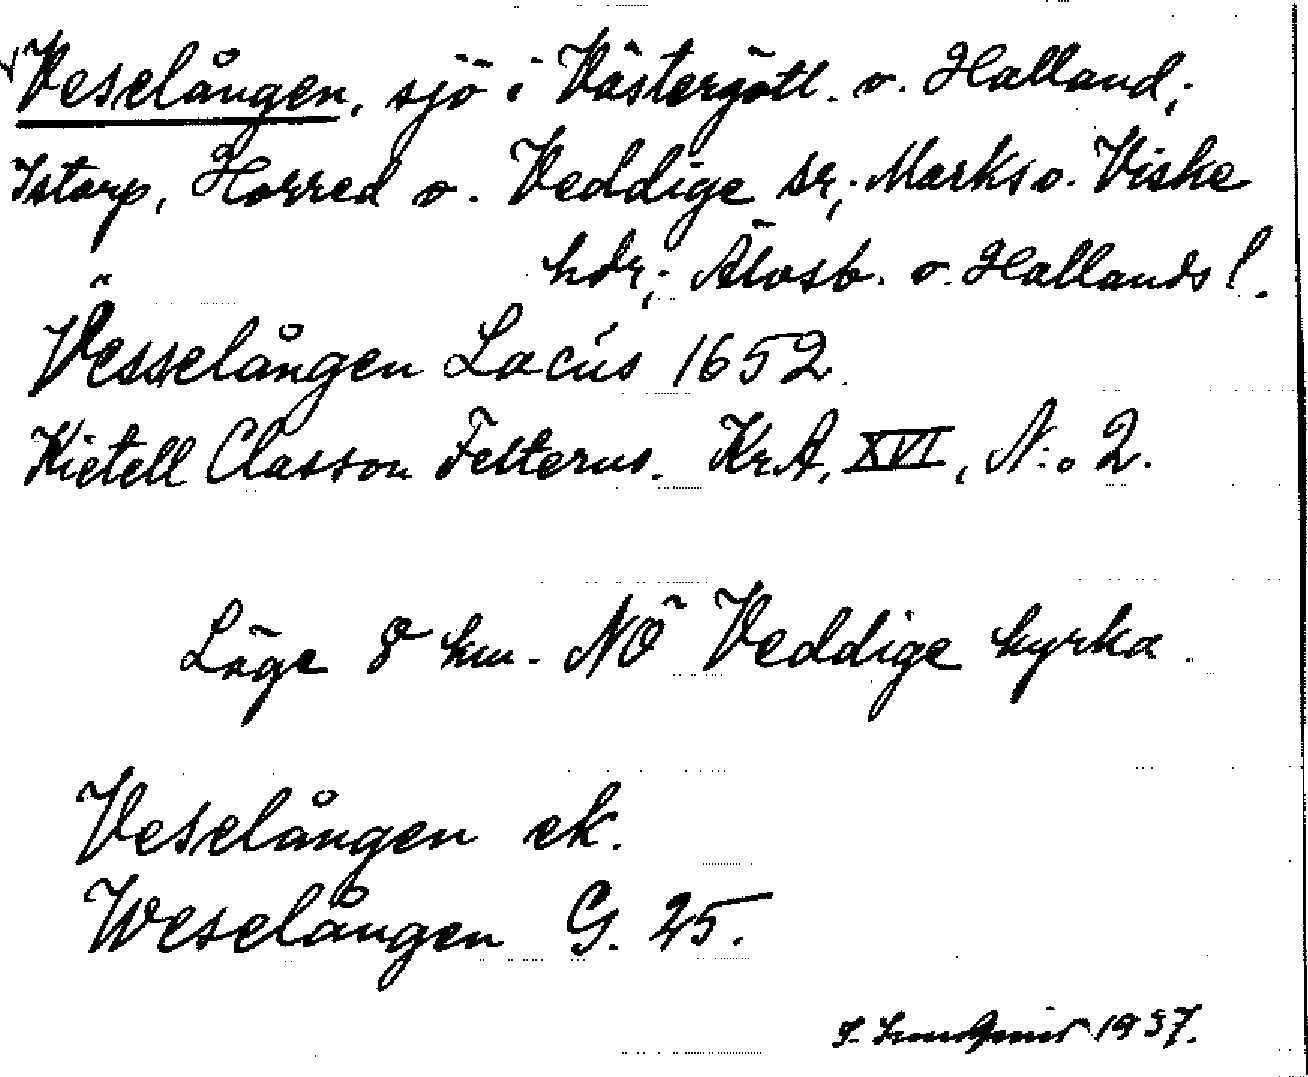 Veselången, sjö i Västergötl. o. Halland;
Istorp, Horred o. Veddige sr; Marks o. Viske
hdr; Älvsb. o. Hallands l.
Vësselången Lacús 1652.
Kietell Classon Felterus. Kr.A, XVI, N:o 2.
Läge 8 km. NÖ Veddige kyrka.
Veselången ek.
Weselången G. 25.
1937.